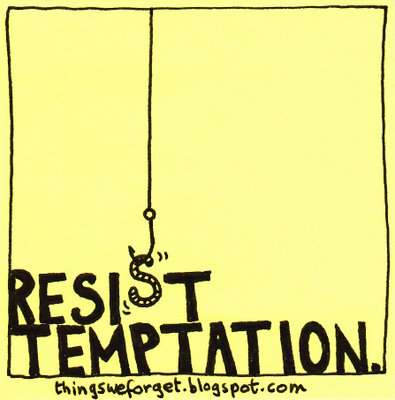 RESIST
TEMPTATION.
thingsweforget.blogspot.com